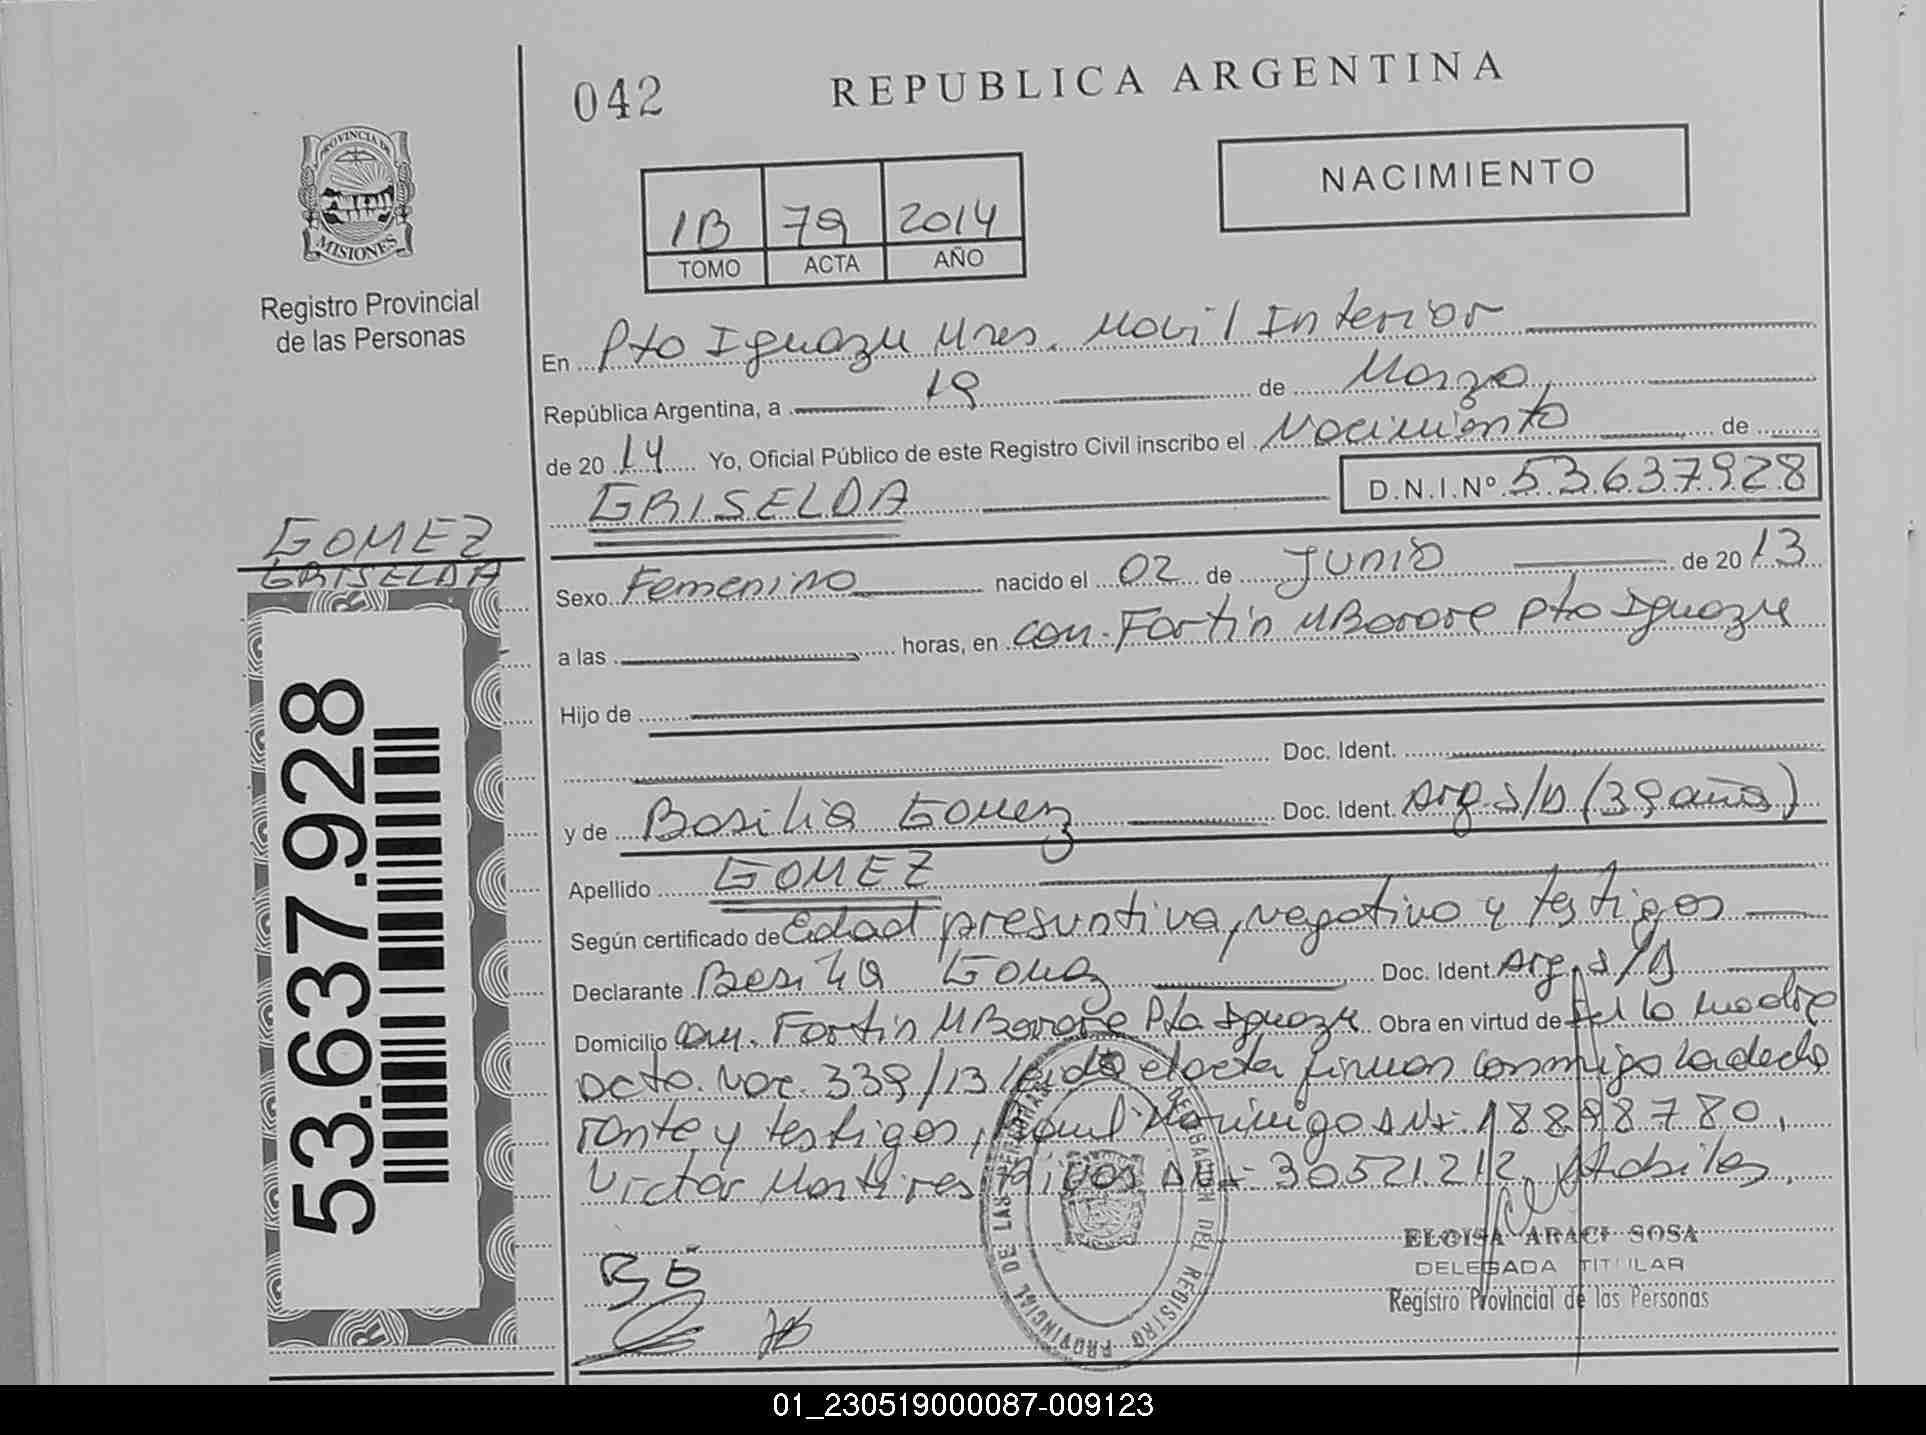 042
REPUBLICA ARGENTINA
PROVINCIA DE
MISIONES
Registro Provincial
de las Personas
NACIMIENTO
1B 79 2014
TOMO ACTA AÑO
En Pto Iguazu Mnes. Movil Interior
República Argentina, a 19 de Marzo,
de 2014 Yo, Oficial Público de este Registro Civil inscribo el Nacimiento de
GRISELDA D.N.I.Nº 53637928
GOMEZ
GRISELDA
Sexo Femenino nacido el 02 de Junio de 2013
a las horas, en com. Fortin MBorore Pto Iguazu
Hijo de
Doc. Ident.
y de Basilia Gomez Doc. Ident. Arg. S/D (39 años)
Apellido GOMEZ
Según certificado de Edad presuntiva, negativo y testigos
Declarante Basilia Gomez Doc. Ident. Arg. S/D
Domicilio com. Fortin MBorore Pto Iguazu Obra en virtud de ser la madre
acta. Nac. 339/13 leida el acta firman conmigo la decla
rante y testigos, Domingo DNI: 18898780,
Victor Martires DNI: 30521212
53.637.928
ELOISA ARACI SOSA
DELEGADA TITULAR
Registro Provincial de las Personas
DELEGACION DEL REGISTRO PROVINCIAL DE LAS PERSONAS
01_230519000087-009123